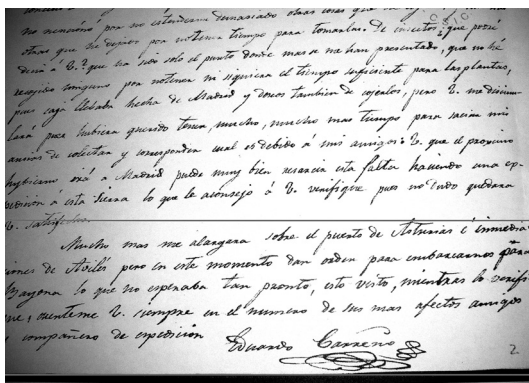 no menciono por no estenderme demasiado otras cosas que
otras que he dejado por no tener tiempo para tomarlas. De insectos ¿que podré
decir á V.? que ha sido solo el punto donde mas se me han presentado, que no he
recogido ninguno por no tener ni siquiera el tiempo suficiente para las plantas,
pues caja llevaba hecha de Madrid y deseos tambien de cojerlos, pero V. me disimu-
lará pues hubiera querido tener mucho, mucho mas tiempo para saciar mis
ansias de colectar y corresponder cual es debido á mis amigos: V. que el proximo
irá á Madrid puede muy bien resarcir esta falta haciendo una es-
pedicion á esta Sierra lo que le aconsejo á V. verifique pues no dudo quedara
V. satisfecho.
Mucho mas me alargara sobre el puerto de Asturias é inmedia-
ciones de Aviles pero en este momento dan orden para embarcarnos para
Bayona lo que no esperaba tan pronto, esto visto, mientras lo verifi-
que, cuenteme V. siempre en el numero de sus mas afectos amigos
y compañero de espedicion
Eduardo Carreño
2